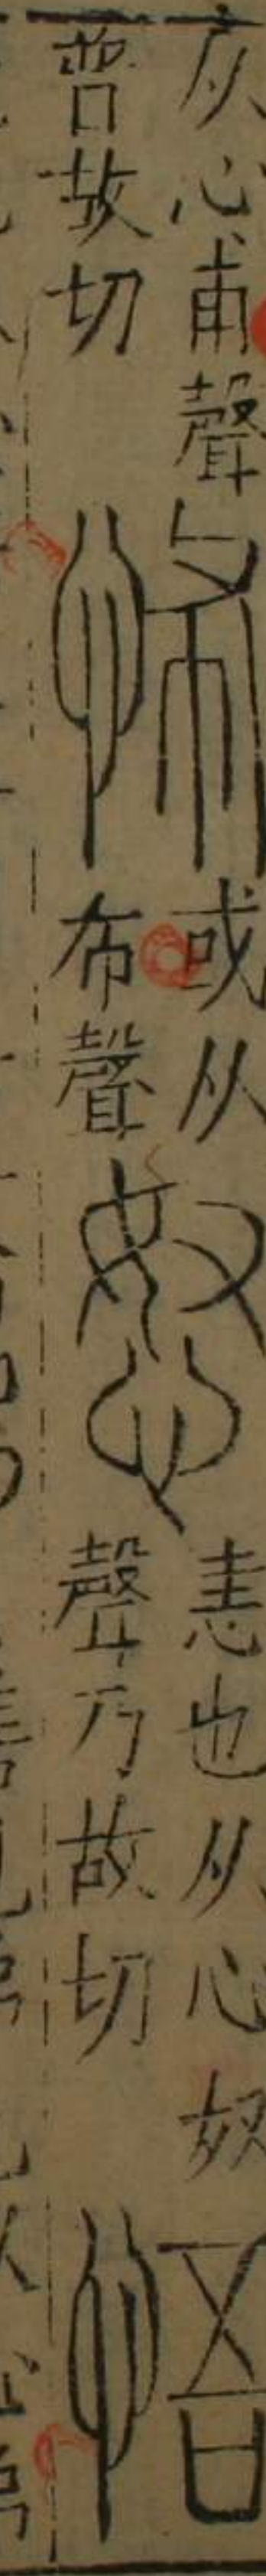 从心甫聲
普故切
怖
或从
布聲
怒
恚也从心奴
聲乃故切
悟